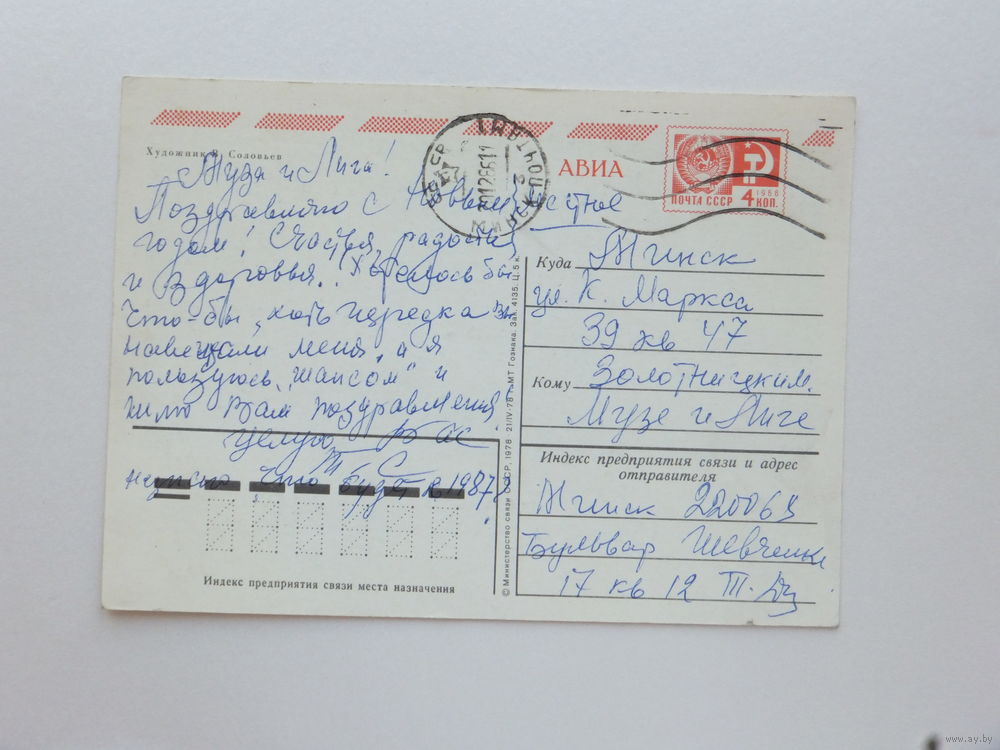 Художник В. Соловьев
Муза и Лига!
Поздравляю с Новым
годом! Счастья, радости
и здоровья. Хотелось бы
что-бы, хоть изредка вы
навещали меня, а я
пользуюсь "шансом" и
шлю Вам поздравления.
Целую Вас
что будет в 1987
Индекс предприятия связи места назначения
© Министерство связи СССР, 1978 21/IV-78 г. МТ Гознака. Зак. 4135. Ц. 5 к.
МИНСК
ПОЧТАМТ
АВИА
местное
ПОЧТА СССР 4 КОП.
1966
Куда Минск
ул. К. Маркса
39 кв 47
Кому Золотницким.
Музе и Лиге
Индекс предприятия связи и адрес
отправителя
Минск
Бульвар Шевченко
17 кв 12
www.ay.by